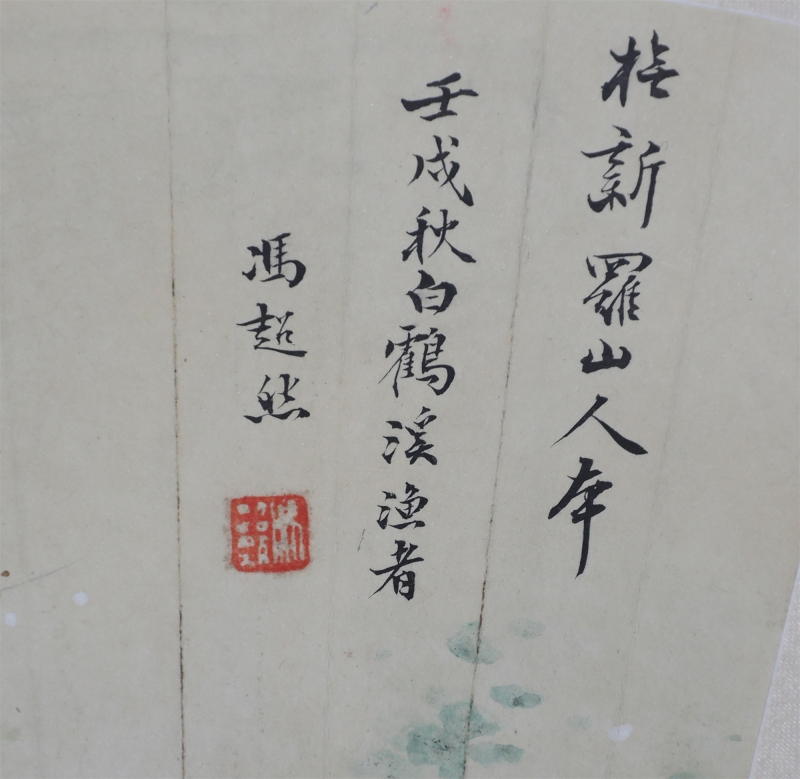 拟新羅山人本
壬戌秋白鶴溪漁者
馮超然